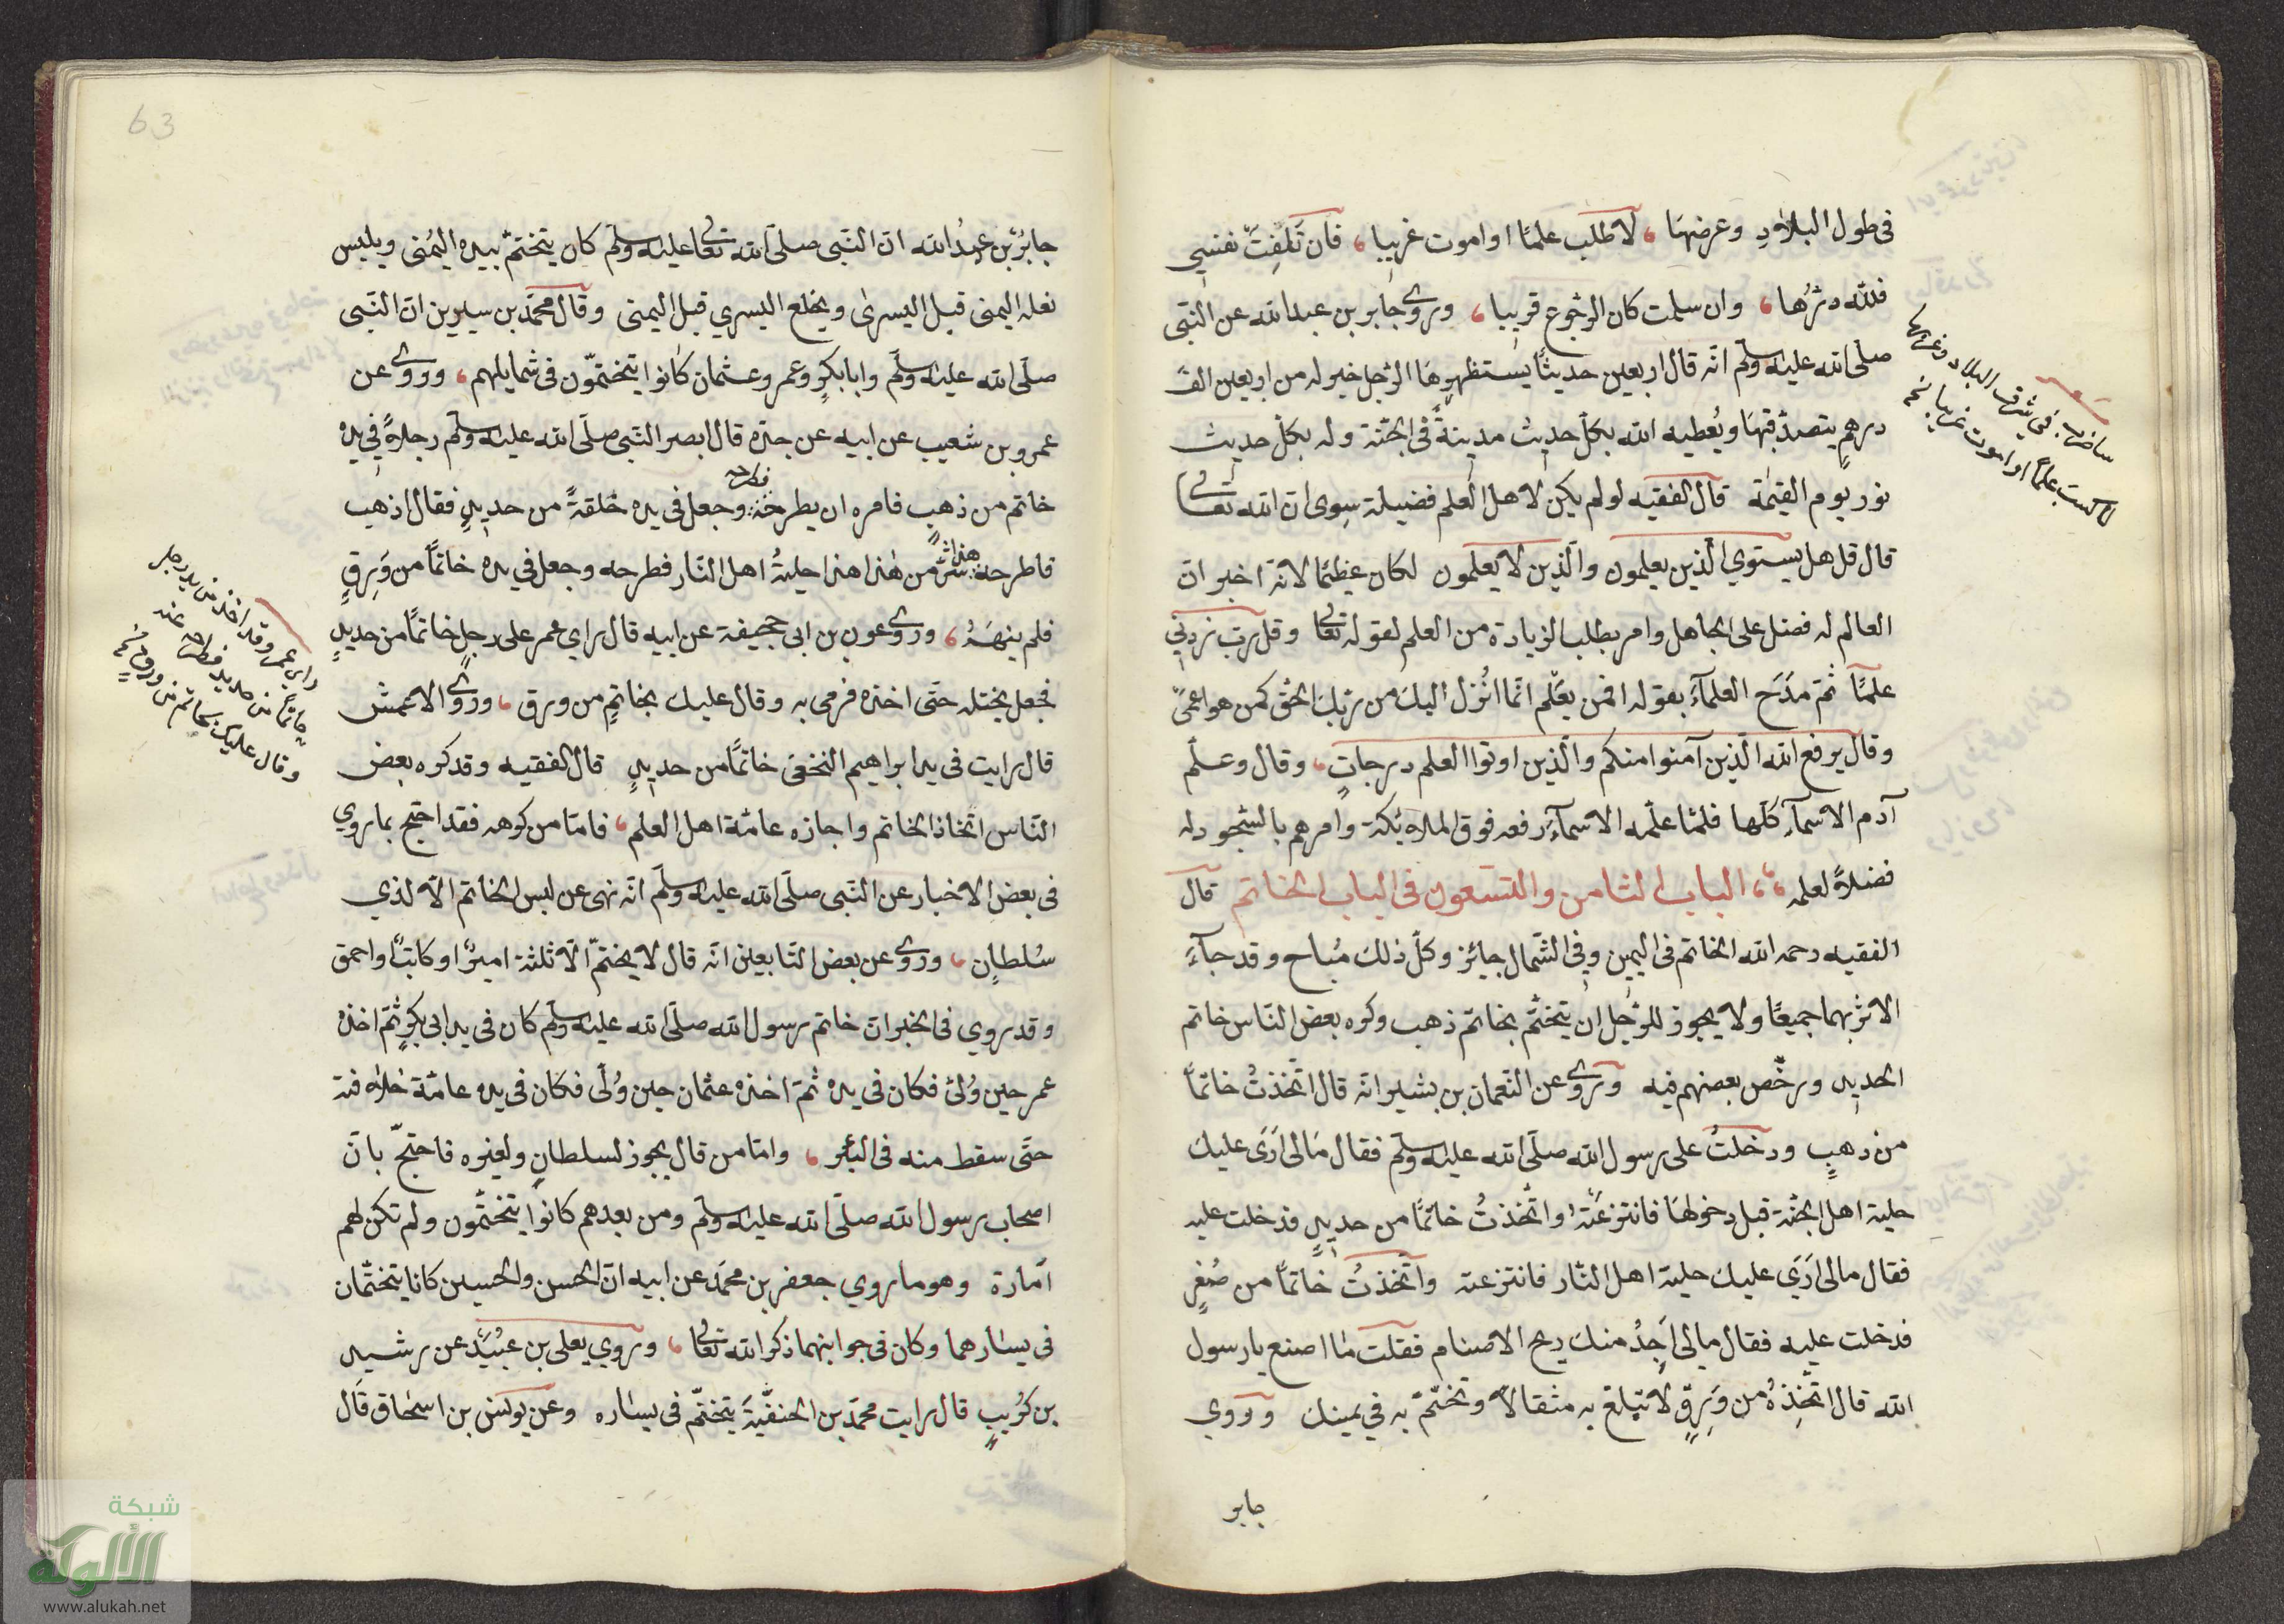 فى طول البلاد وعرضها لاطلب علما او اموت غريبا فان تلفت نفسي
فلله درّها وان سلمت كان الرجوع قريبا وروى جابر بن عبد الله عن النبى
صلى الله عليه وسلم انه قال اربعين حديثا يستظهرها الرجل خير له من اربعين الف
درهم يتصدق بها ويعطيه الله بكل حديث مدينة فى الجنة وله بكل حديث
نور يوم القيمة قال الفقيه لو لم يكن لاهل العلم فضيلة سوى ان الله تعالى
قال قل هل يستوي الذين يعلمون والذين لا يعلمون لكان عظيما لانه اخبر ان
العالم له فضل على الجاهل وامر بطلب الزيادة من العلم لقوله تعالى وقل رب زدني
علما ثم مدح العلمآء بقوله افمن يعلم انما انزل اليك من ربك الحق كمن هو اعمى
وقال يرفع الله الذين آمنوا منكم والذين اوتوا العلم درجات وقال وعلم
آدم الاسمآء كلها فلما علمه الاسمآء رفعه فوق الملائكة وامرهم بالسجود له
فضلا لعلمه الباب الثامن والتسعون فى الباب الخاتم قال
الفقيه رحمه الله الخاتم فى اليمين وفى الشمال جائز وكل ذلك مباح وقد جآء
الاثر بهما جميعا ولا يجوز للرجل ان يتختم بخاتم ذهب وكره بعض الناس خاتم
الحديد ورخص بعضهم فيه وروى عن النعمان بن بشير انه قال اتخذت خاتما
من ذهب ودخلت على رسول الله صلى الله عليه وسلم فقال مالى ارى عليك
حلية اهل الجنة قبل دخولها فانتزعته واتخذت خاتما من حديد فدخلت عليه
فقال مالى ارى عليك حلية اهل النار فانتزعته واتخذت خاتما من صفر
فدخلت عليه فقال مالى اجد منك ريح الاصنام فقلت ما اصنع يا رسول
الله قال اتخذه من ورق لا تبلغ به مثقالا وتختم به في يمينك وروي
جابر
شعر
ساضرب فى شرق البلاد وغربها
لاكسب علما او اموت غريبا
63
جابر بن عبد الله ان النبى صلى الله تعالى عليه وسلم كان يتختم بيده اليمنى ويلبس
نعله اليمنى قبل اليسرى ويخلع اليسري قبل اليمنى وقال محمد بن سيرين ان النبى
صلى الله عليه وسلم وابا بكر وعمر وعثمان كانوا يتختمون فى شمايلهم وروى عن
عمرو بن شعيب عن ابيه عن جده قال ابصر النبى صلى الله عليه وسلم رجلا في يده
خاتم من ذهب فامره ان يطرحه فطرحه وجعل فى يده حلقة من حديد فقال اذهب
فاطرحه هذا شر من هذا هذا حلية اهل النار فطرحه وجعل فى يده خاتما من ورق
فلم ينهه وروى عون بن ابى جحيفة عن ابيه قال راي عمر على رجل خاتما من حديد
فجعل يختله حتى اخذه فرمى به وقال عليك بخاتم من ورق وروى الاعمش
قال رايت فى يد ابراهيم النخعى خاتما من حديد قال الفقيه وقد كره بعض
الناس اتخاذ الخاتم واجازه عامة اهل العلم فاما من كرهه فقد احتج بما روي
فى بعض الاخبار عن النبى صلى الله عليه وسلم انه نهى عن لبس الخاتم الا لذي
سلطان وروى عن بعض التابعين انه قال لا يختم الا ثلثة امير او كاتب او احمق
وقد روي فى الخبر ان خاتم رسول الله صلى الله عليه وسلم كان فى يد ابى بكر ثم اخذه
عمر حين ولى فكان فى يده ثم اخذه عثمان حين ولى فكان فى يده عامة خلافته
حتى سقط منه فى البئر واما من قال يجوز لسلطان ولغيره فاحتج بان
اصحاب رسول الله صلى الله عليه وسلم ومن بعدهم كانوا يتختمون ولم تكن لهم
امارة وهو ما روي جعفر بن محمد عن ابيه ان الحسن والحسين كانا يتختمان
فى يسارهما وكان فى جوابنهما ذكر الله تعالى وروي يعلى بن عبيد عن رشيد
بن كريب قال رايت محمد بن الحنفية يتختم فى يساره وعن يونس بن اسحاق قال
راى عمر وقد اخذ من يد رجل
خاتما من حديد فطرحه عنه
وقال عليك بخاتم من ورق
شبكة
الألوكة
www.alukah.net